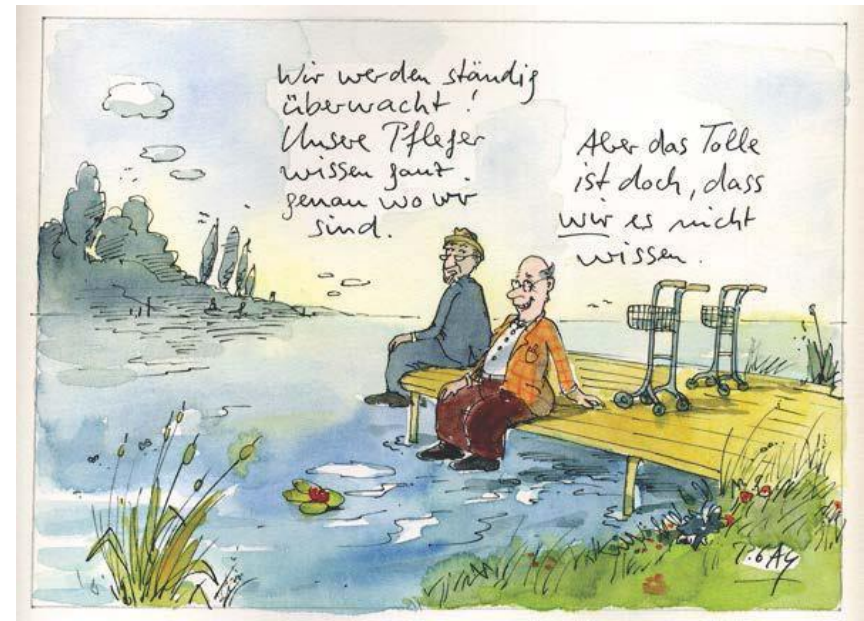 Wir werden ständig
überwacht!
Unsere Pfleger
wissen ganz
genau wo wir
sind.
Aber das Tolle
ist doch, dass
wir es nicht
wissen.
P. GAY